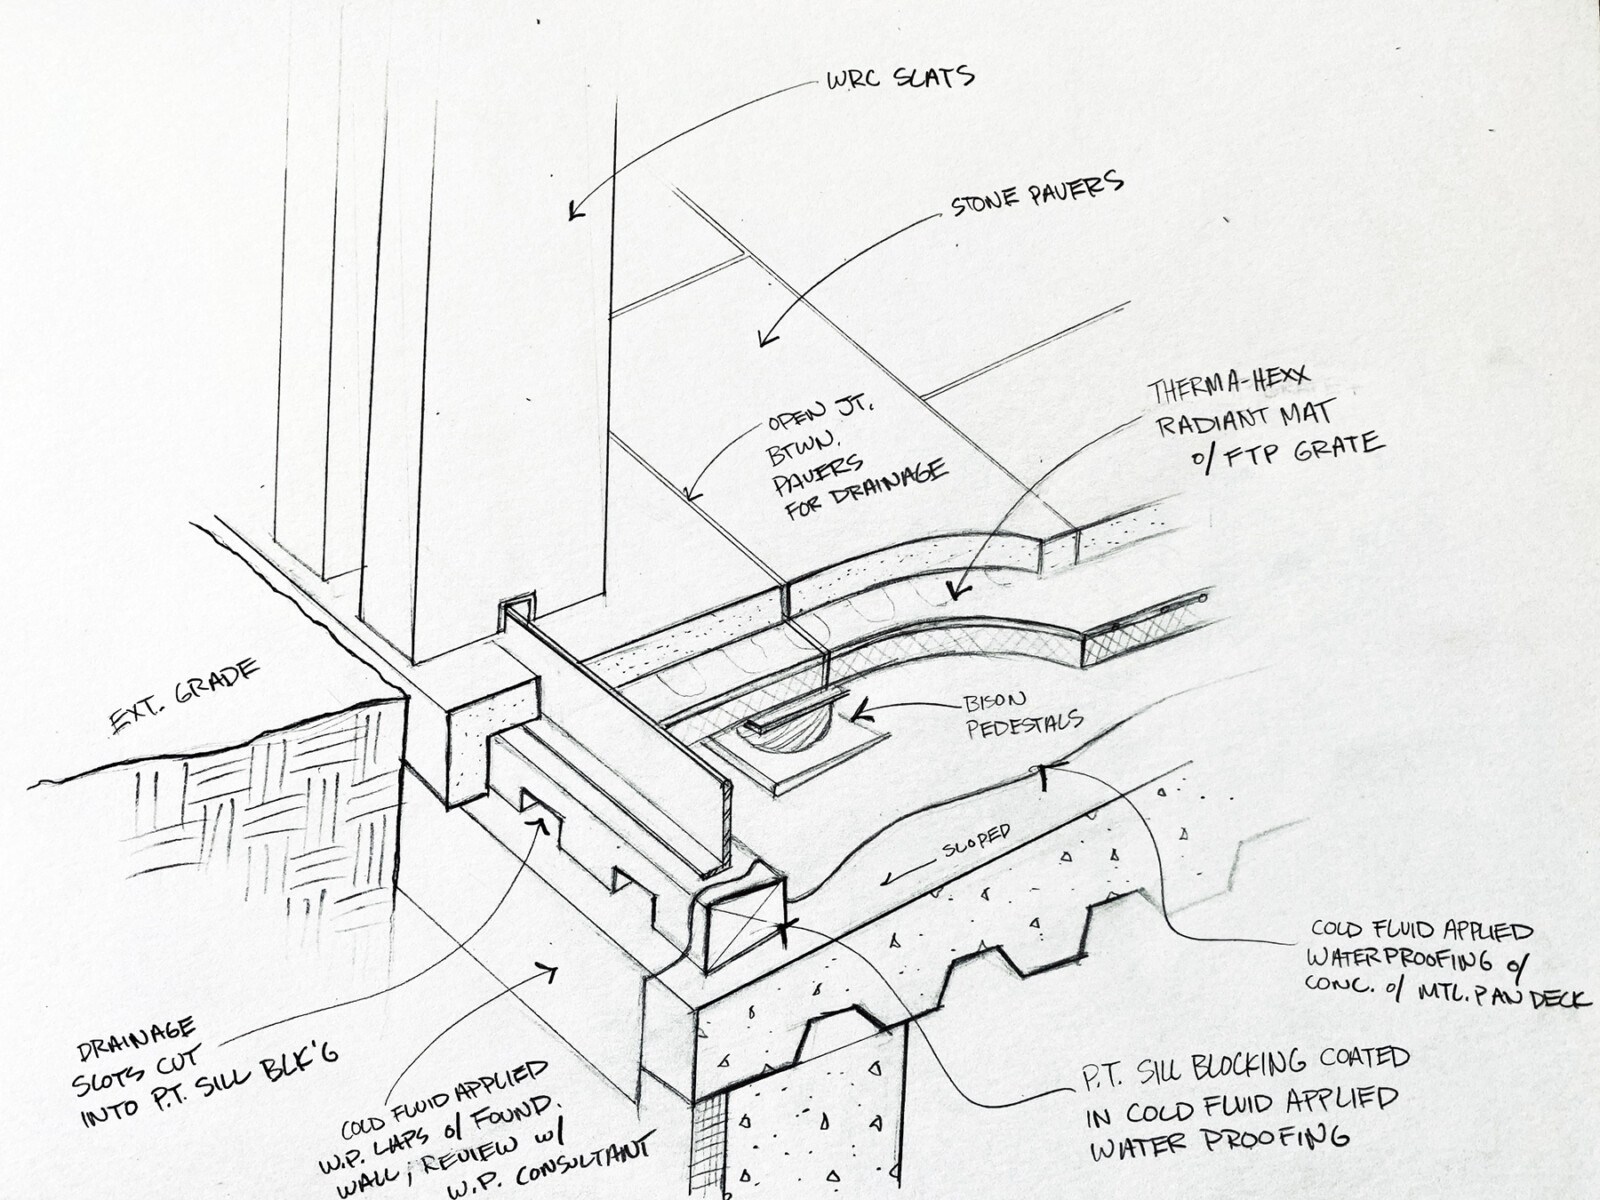 WRC SLATS
STONE PAVERS
THERMA-HEXX
RADIANT MAT
o/ FTP GRATE
OPEN JT.
BTWN.
PAVERS
FOR DRAINAGE
EXT. GRADE
BISON
PEDESTALS
SLOPED
COLD FLUID APPLIED
WATERPROOFING o/
CONC. o/ MTL. PAN DECK
DRAINAGE
SLOTS CUT
INTO P.T. SILL BLK'G
COLD FLUID APPLIED
W.P. LAPS o/ FOUND.
WALL; REVIEW W/
W.P. CONSULTANT
P.T. SILL BLOCKING COATED
IN COLD FLUID APPLIED
WATER PROOFING